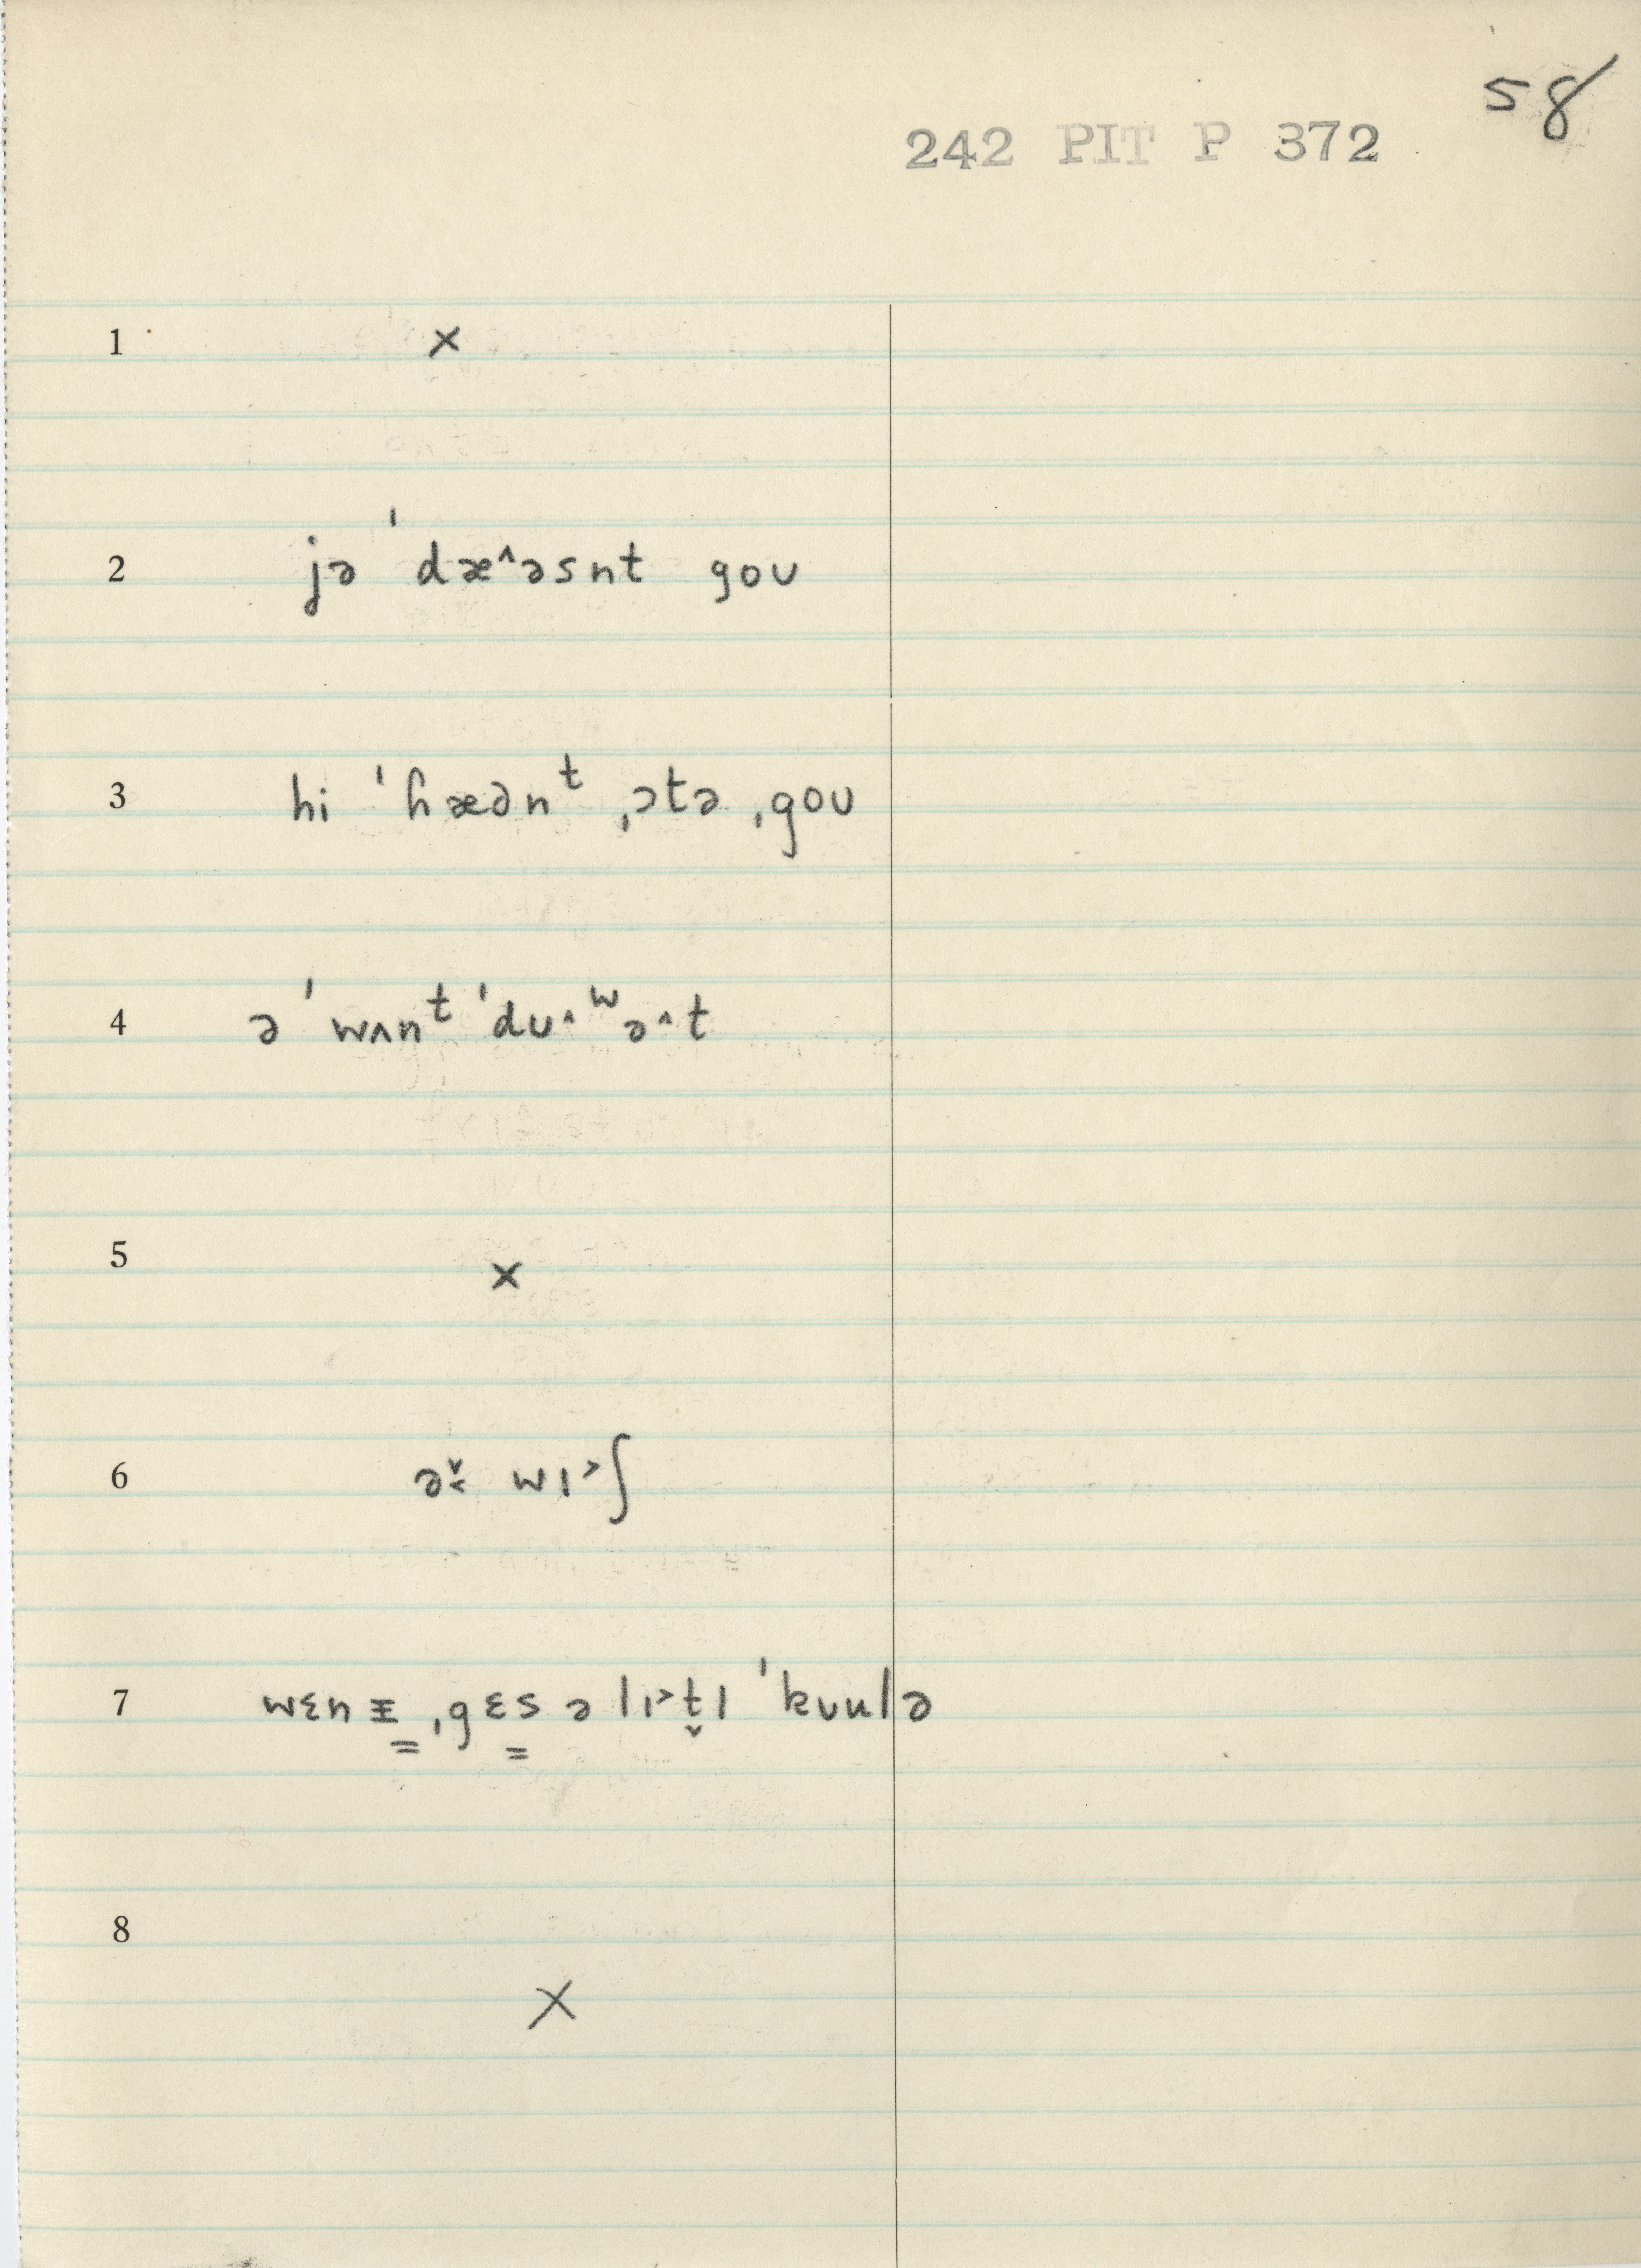 58
242 PIT P 372
1 x
2 jə ˈdæ^əsnt goʊ
3 hi ˈɦæənᵗ ˌɔtə ˌgoʊ
4 ə ˈwʌnᵗ ˈdʊ^ʷə^t
5 x
6 ə̬˂ wɪ˃ʃ
7 wɛn ɪ̵ ˌgɛs ə lɪ˃t̬l ˈkuulə
8 x